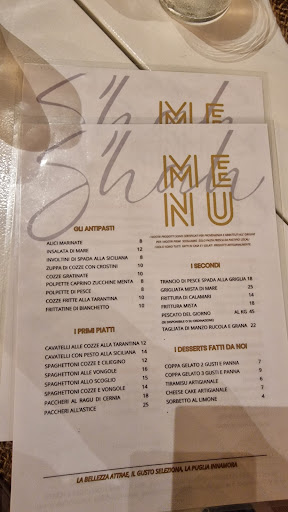 S'hoh
ME
S'hoh
ME
NU
GLI ANTIPASTI
ALICI MARINATE 8
INSALATA DI MARE 12
INVOLTINI DI SPADA ALLA SICILIANA 10
ZUPPA DI COZZE CON CROSTINI 10
COZZE GRATINATE 8
POLPETTE CAPRINO ZUCCHINE MENTA 8
POLPETTE DI PESCE 8
COZZE FRITTE ALLA TARANTINA 10
FRITTATINE DI BIANCHETTO 10
I PRIMI PIATTI
CAVATELLI ALLE COZZE ALLA TARANTINA 12
CAVATELLI CON PESTO ALLA SICILIANA 14
SPAGHETTONI COZZE E CILIEGINO 12
SPAGHETTONI ALLE VONGOLE
SPAGHETTONI ALLO SCOGLIO
SPAGHETTONI COZZE E VONGOLE 14
PACCHERI AL RAGU DI CERNIA 18
PACCHERI ALL'ASTICE 25
I SECONDI
TRANCIO DI PESCE SPADA ALLA GRIGLIA 18
GRIGLIATA MISTA DI MARE 25
FRITTURA DI CALAMARI 14
FRITTURA MISTA 18
PESCATO DEL GIORNO AL KG 45
TAGLIATA DI MANZO RUCOLA E GRANA 22
I DESSERTS FATTI DA NOI
COPPA GELATO 2 GUSTI E PANNA 7
COPPA GELATO 3 GUSTI E PANNA 9
TIRAMISU ARTIGIANALE 6
CHEESE CAKE ARTIGIANALE 6
SORBETTO AL LIMONE 4
LA BELLEZZA ATTRAE, IL GUSTO SELEZIONA, LA PUGLIA INNAMORA